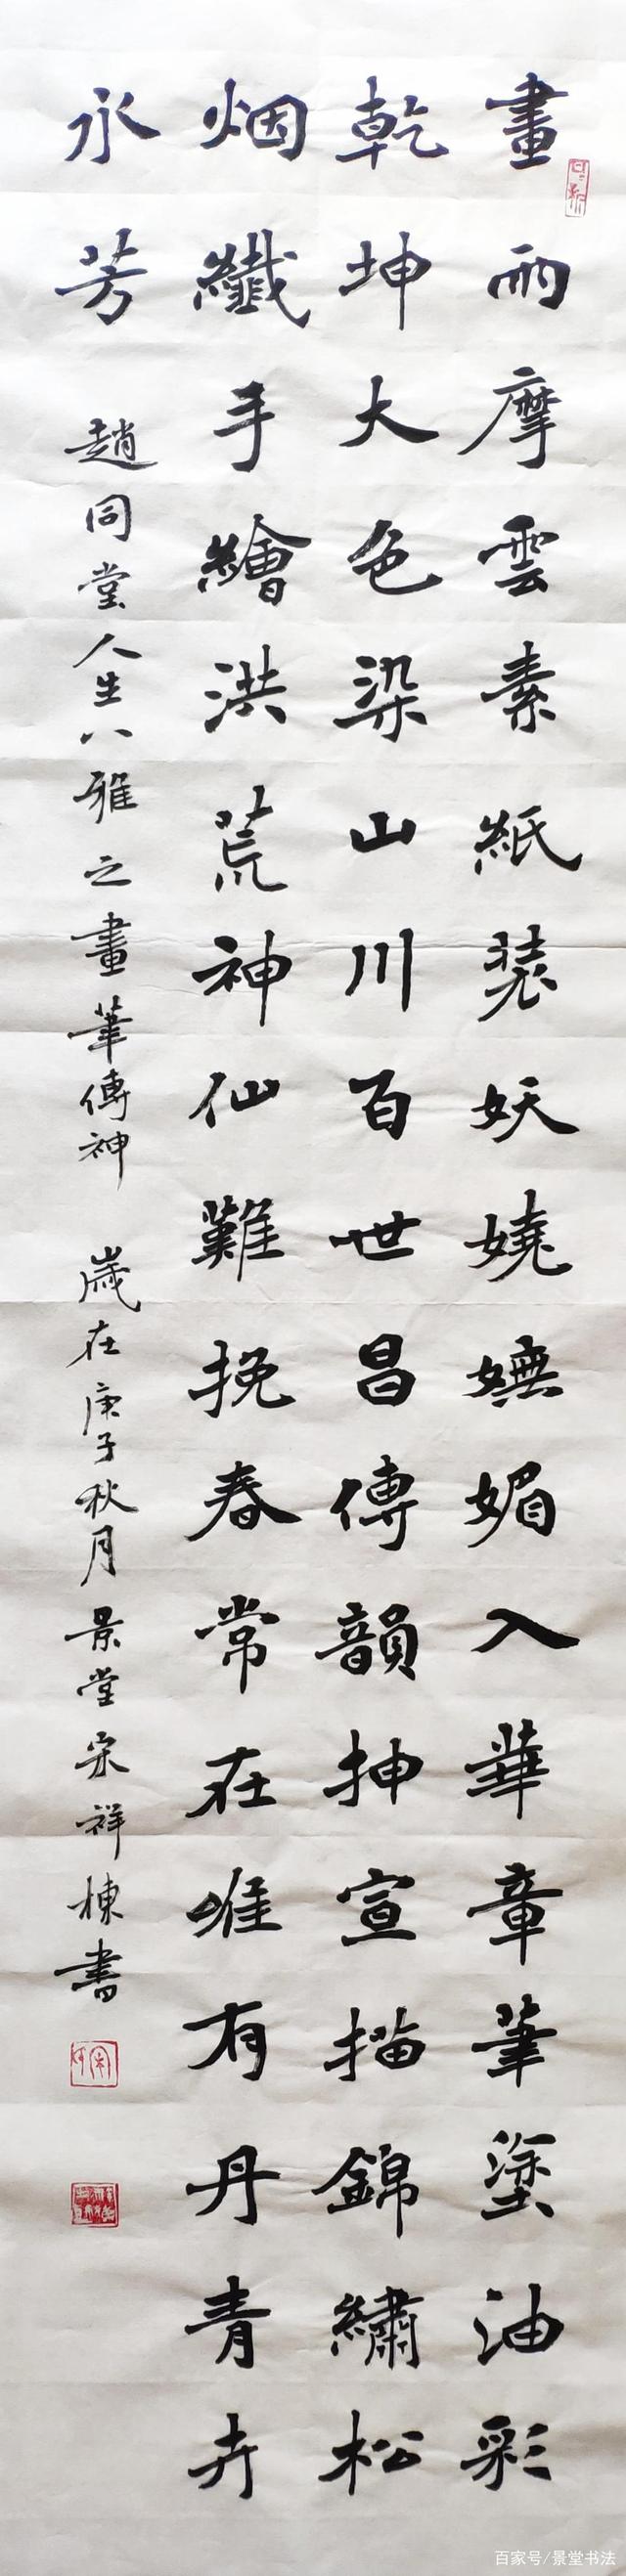 畫雨摩雲素紙裝妖嬈嫵媚入華章筆塗油彩
乾坤大色染山川百世昌傳韻抻宣描錦繡松
烟纖手繪洪荒神仙難挽春常在唯有丹青卉
永芳 趙同堂人生八雅之畫筆傳神 歲在庚子秋月景堂宋祥棟書
百家号/景堂书法